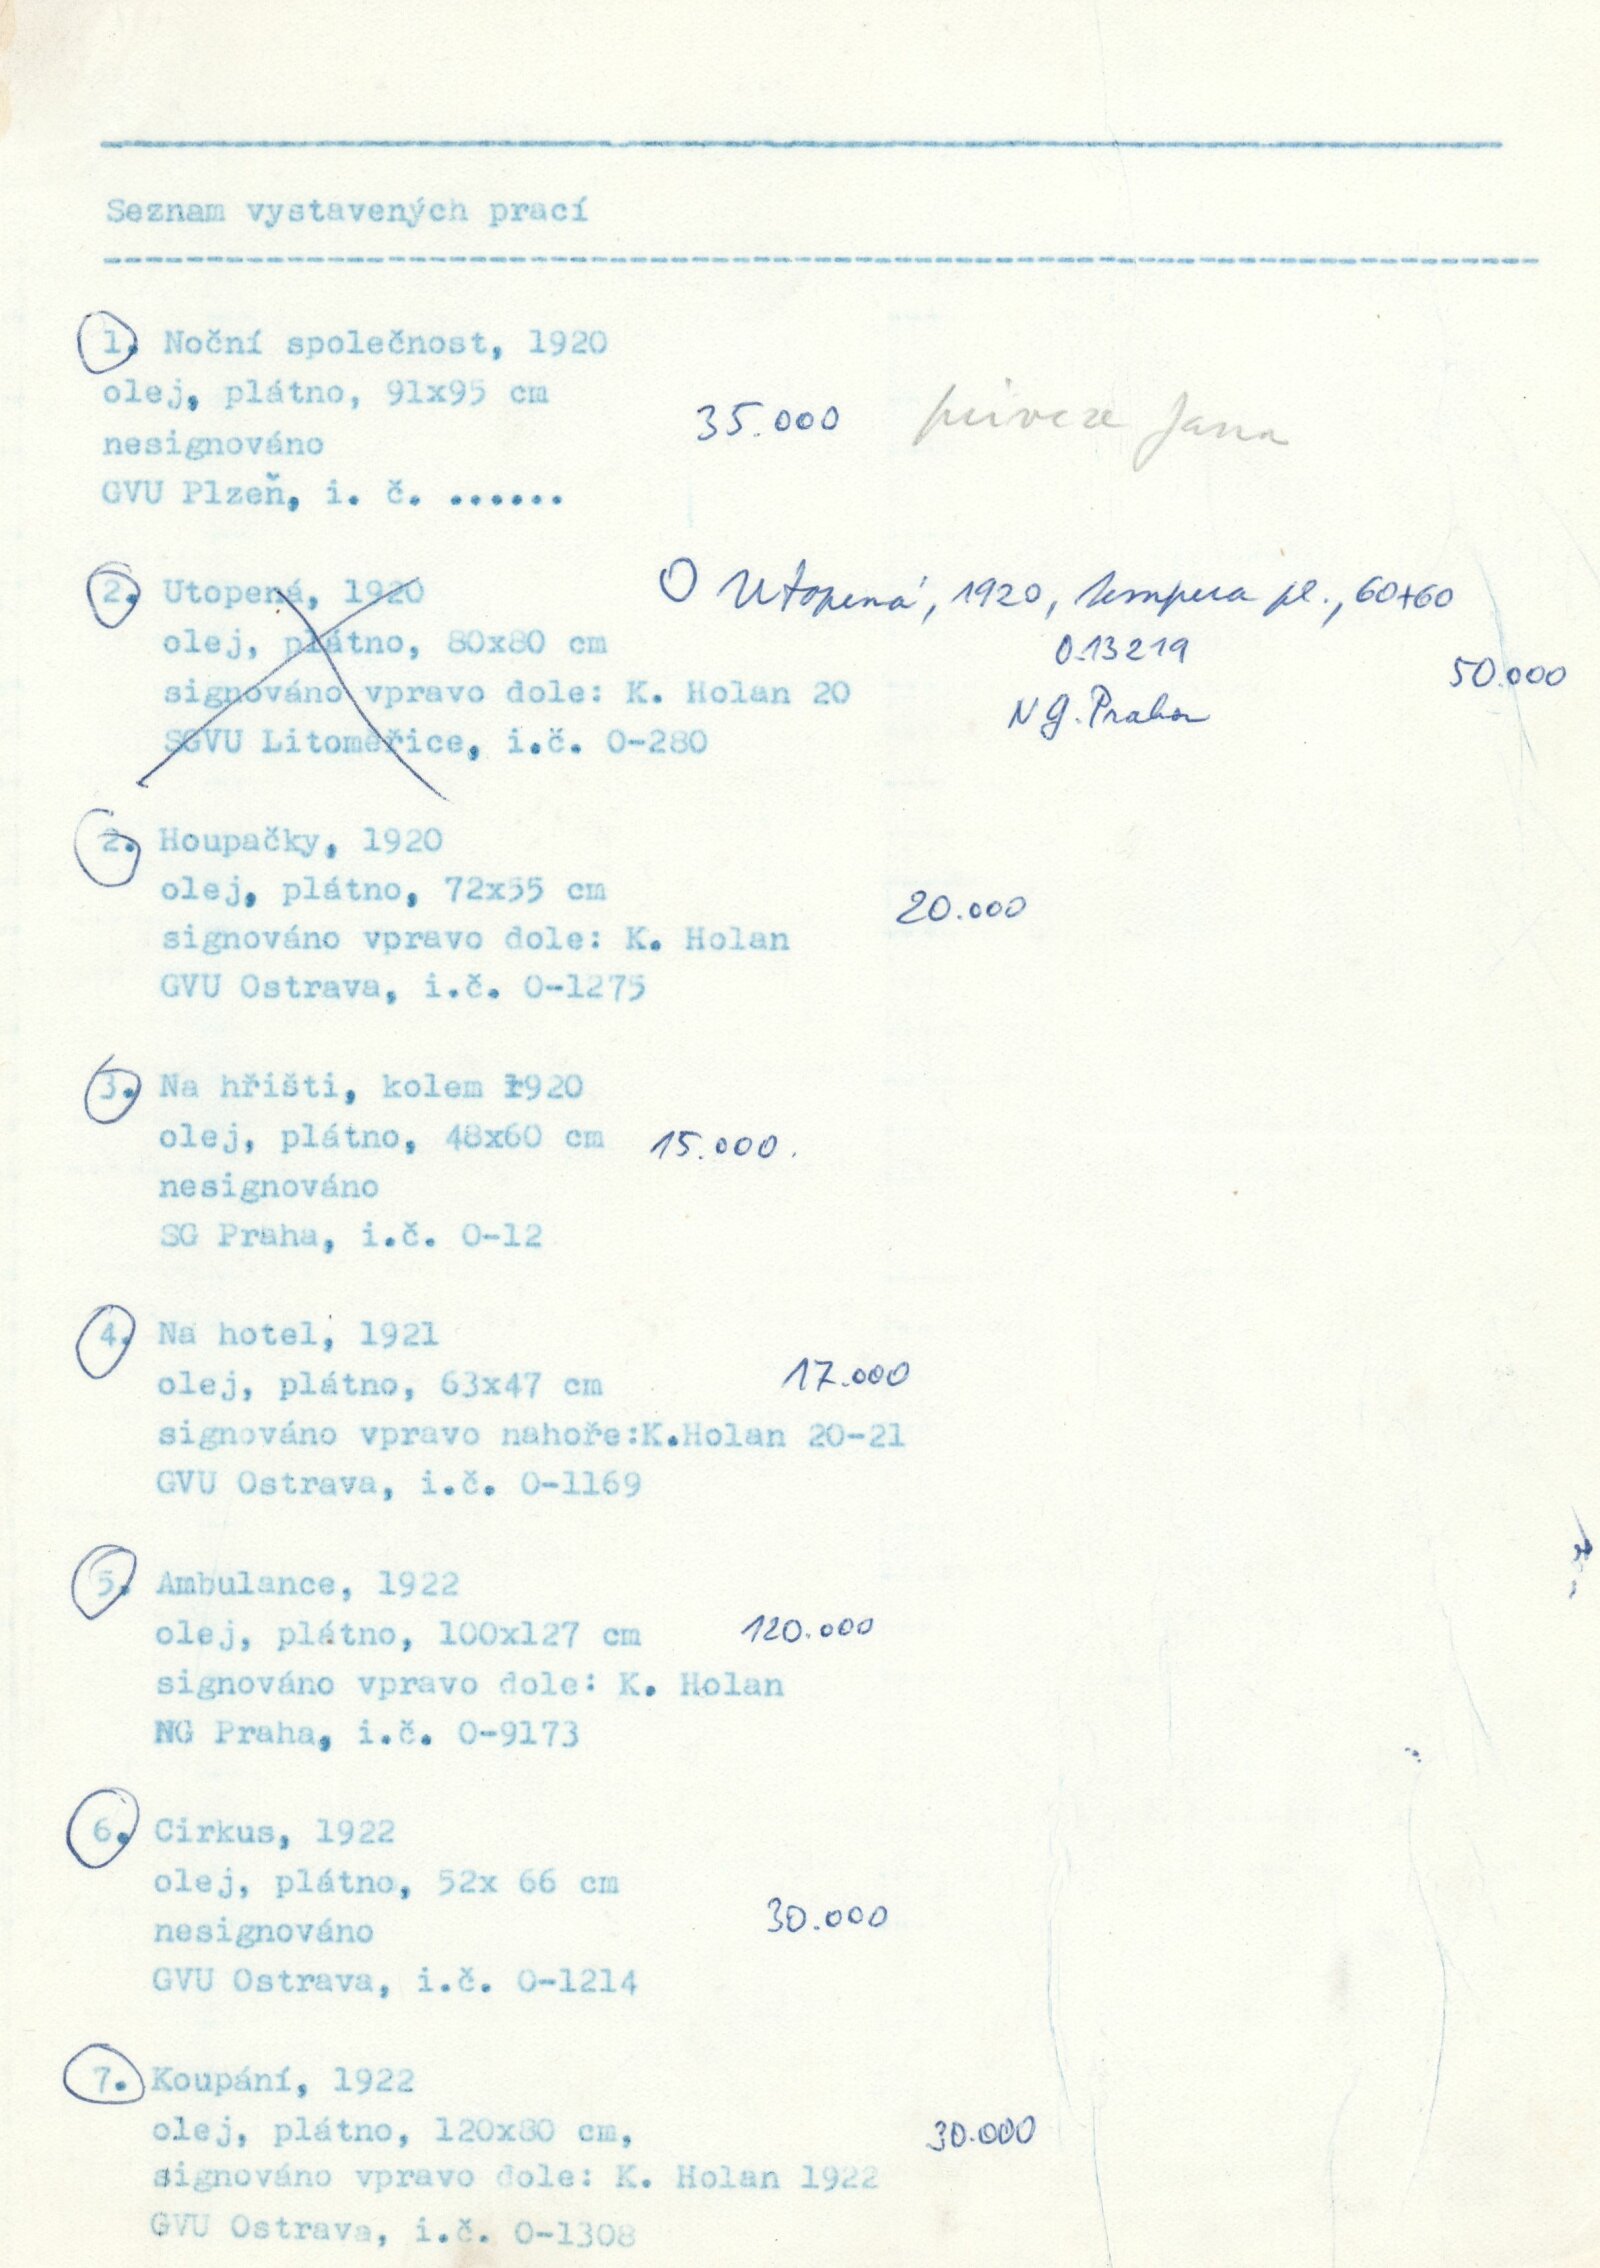 Seznam vystavených prací
1. Noční společnost, 1920
olej, plátno, 91x95 cm
35.000 přiveze Jana
nesignováno
GVU Plzeň, i. č. ......
2. Utopená, 1920
O Utopená, 1920, tempera pl., 60+60
olej, plátno, 80x80 cm
O.13219
50.000
signováno vpravo dole: K. Holan 20
NG. Praha
SGVU Litoměřice, i.č. O-280
2. Houpačky, 1920
olej, plátno, 72x55 cm
20.000
signováno vpravo dole: K. Holan
GVU Ostrava, i.č. O-1275
3. Na hřišti, kolem 1920
olej, plátno, 48x60 cm 15.000.
nesignováno
SG Praha, i.č. O-12
4. Na hotel, 1921
olej, plátno, 63x47 cm 17.000
signováno vpravo nahoře:K.Holan 20-21
GVU Ostrava, i.č. O-1169
5. Ambulance, 1922
olej, plátno, 100x127 cm 120.000
signováno vpravo dole: K. Holan
NG Praha, i.č. O-9173
6. Cirkus, 1922
olej, plátno, 52x 66 cm
30.000
nesignováno
GVU Ostrava, i.č. O-1214
7. Koupání, 1922
olej, plátno, 120x80 cm, 30.000
signováno vpravo dole: K. Holan 1922
GVU Ostrava, i.č. O-1308